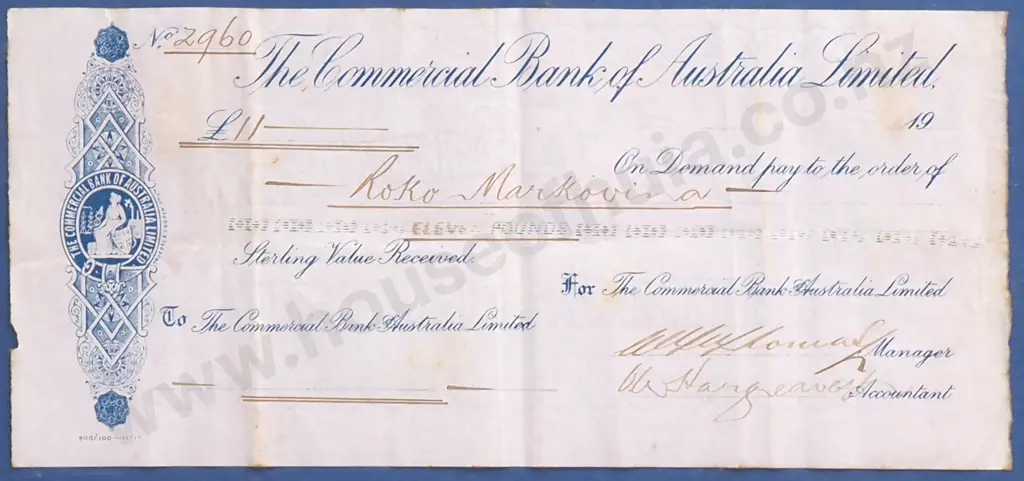 No. 2960
The Commercial Bank of Australia Limited.
£11
19
On Demand pay to the order of
Roko Markovina
ELEVEN POUNDS
Sterling Value Received.
For The Commercial Bank of Australia Limited
To The Commercial Bank of Australia Limited
Manager
Hargreaves
Accountant
THE COMMERCIAL BANK OF AUSTRALIA LIMITED
www.houseofnuia.co.nz